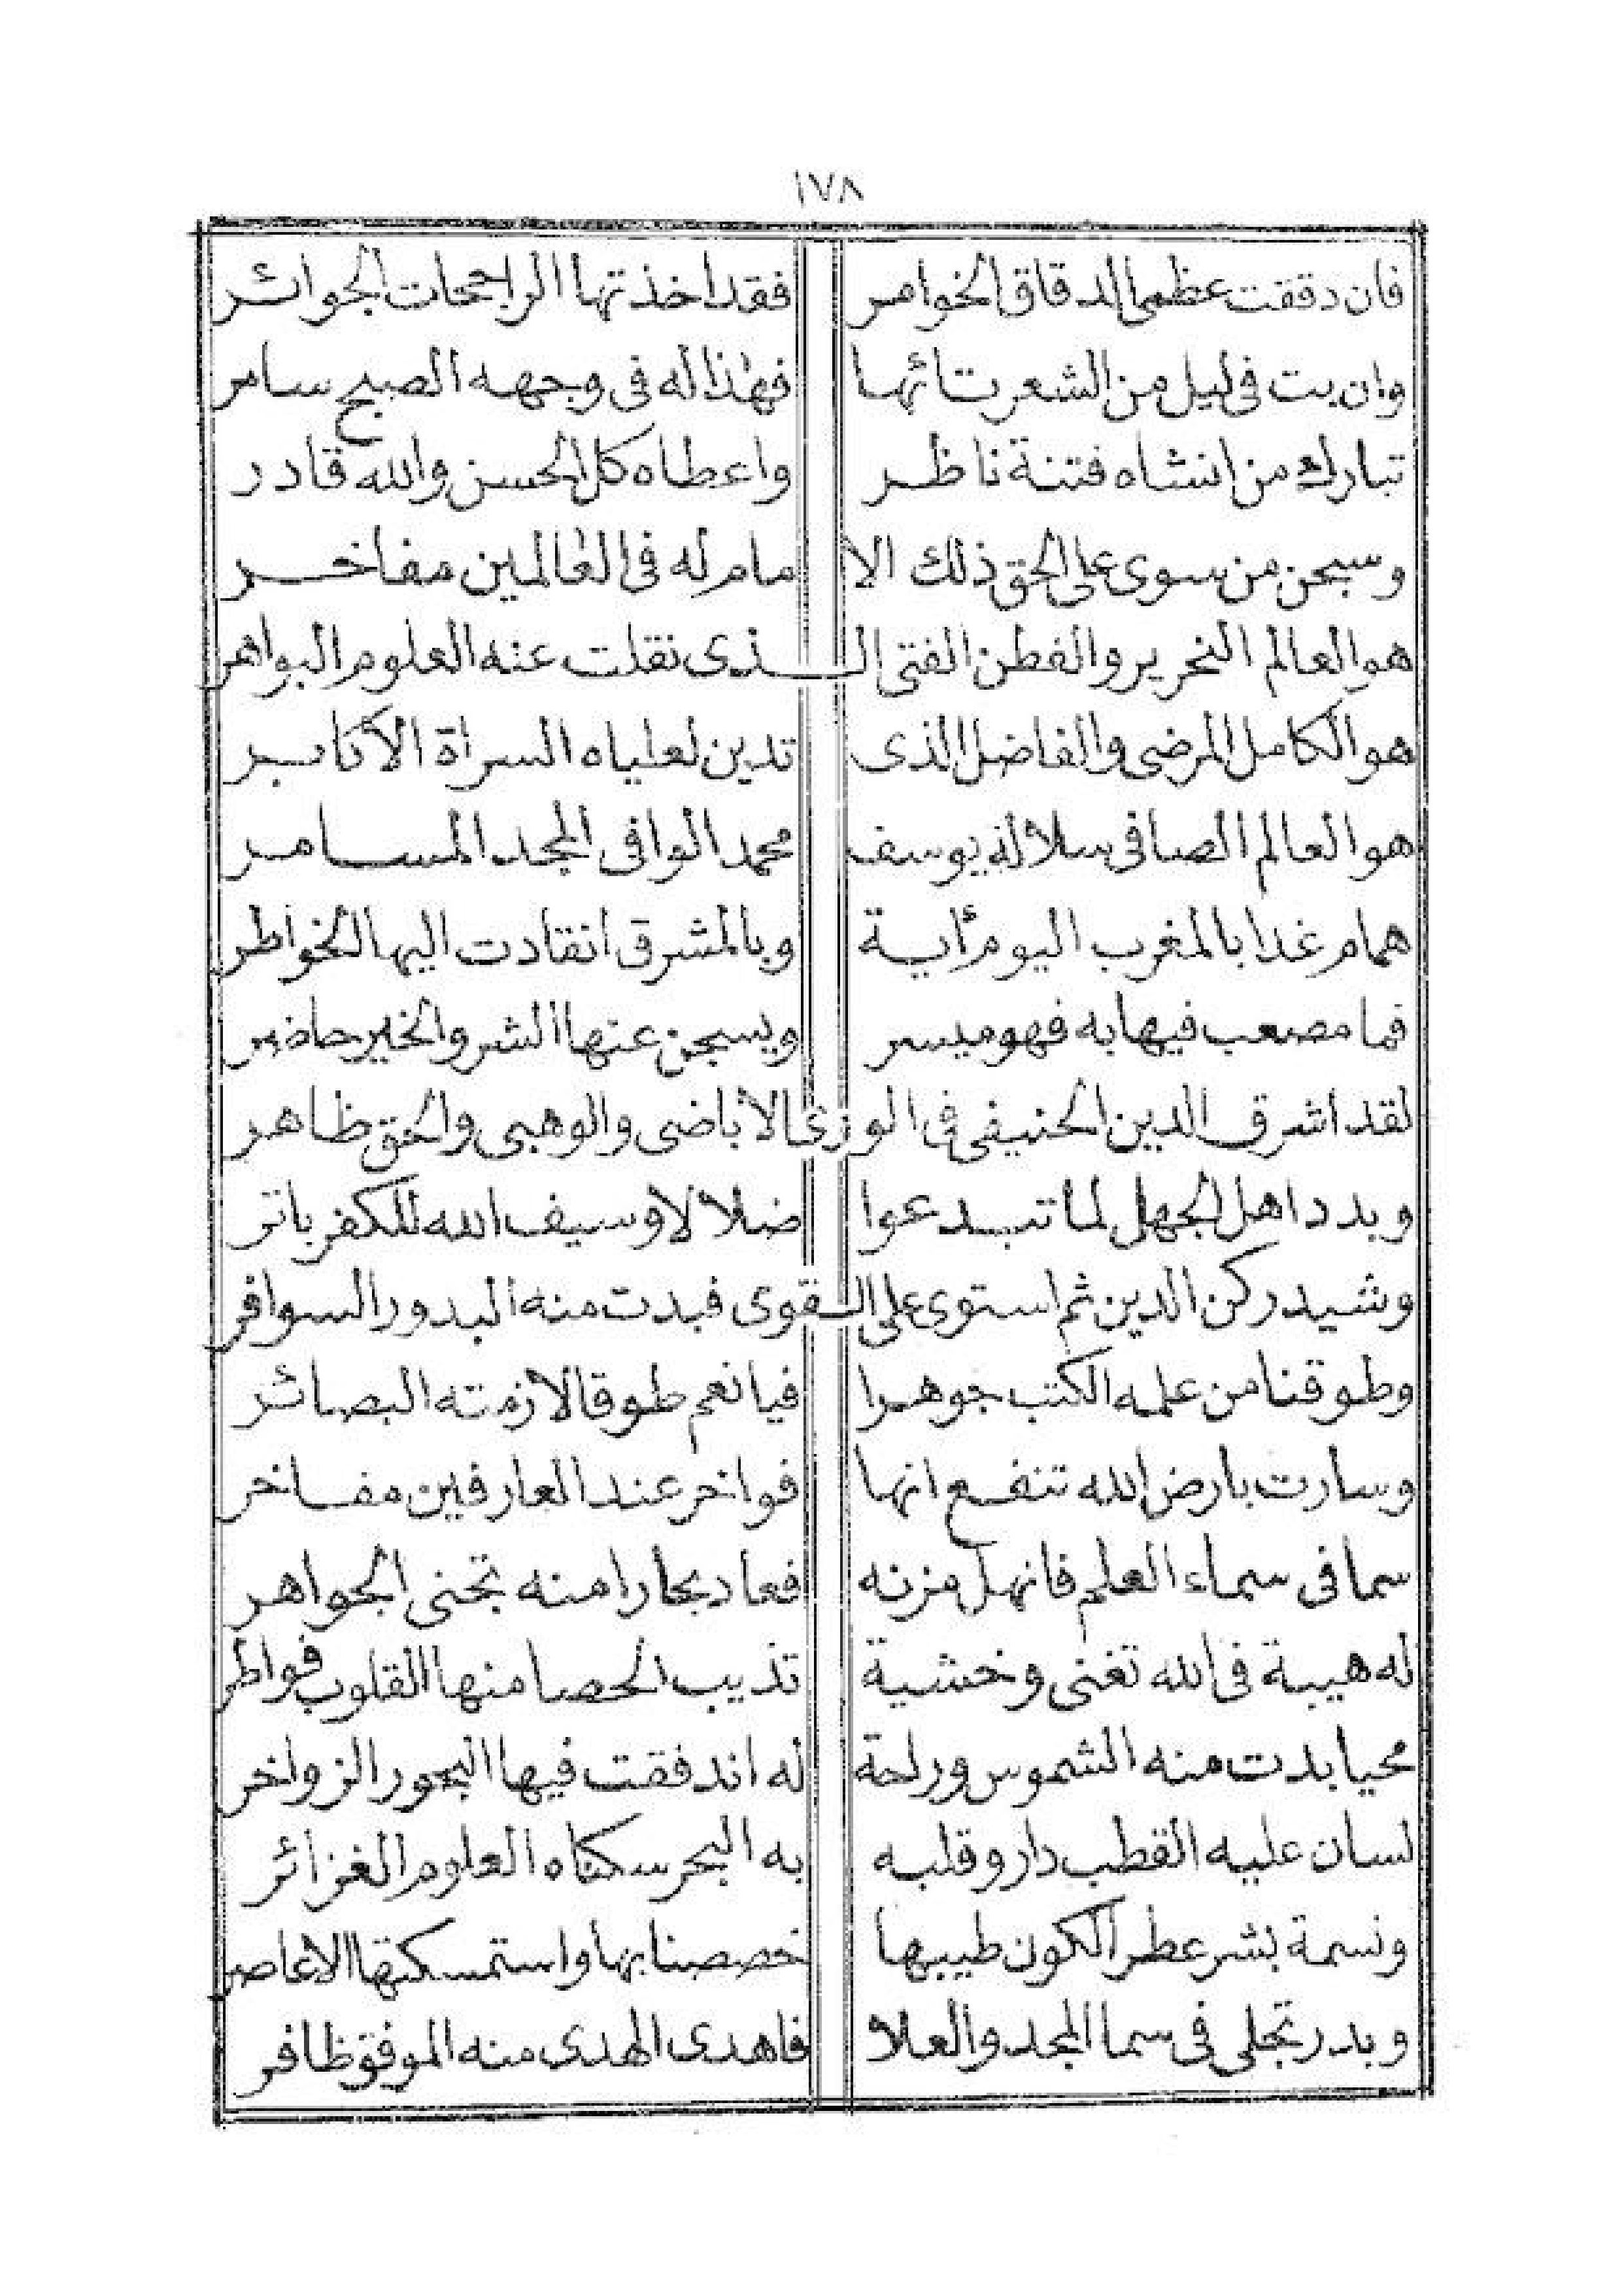 ١٧٨
فان دققت عظمى الدقاق الخوامر فقد اخذتها الراجحات الجوائر
وان بت فى ليل من الشعر تائها فهذا له فى وجهه الصبح سامر
تبارك من انشاه فتنة ناظر واعطاه كل الحسن والله قادر
وسبحن من سوى على الحق ذلك الا مام له فى العالمين مفاخر
هو العالم النحرير والفطن الفتى الذى نقلت عنه العلوم البواهر
هو الكامل المرضى والفاضل الذى تدين لعلياه السراة الاكابر
هو العالم الصافى سلالة يوسف محمد الوافى المجد المسامر
همام غدا بالمغرب اليوم أية وبالمشرق انقادت اليها الخواطر
فما مصعب فيها به فهو ميسر ويسجن عنها الشر والخير حاضر
لقد اشرق الدين الحنيفى فى الورى الاباضى والوهبى والحق ظاهر
وبدد اهل الجهل لما تبدعوا ضلالا لا وسيف الله للكفر باتر
وشيد ركن الدين ثم استوى على التقوى فبدت منه البدور السوافر
وطوقنا من علمه الكتب جوهرا فيا نعم طوقا لازمته البصائر
وسارت بارض الله تنفع انها فواخر عند العارفين مفاخر
سما فى سماء العلم فانهل مزنه فعاد بحارا منه تجنى الجواهر
له هيبة فى الله تغنى وخشية تذيب الحصا منها القلوب فواطر
محيا بدت منه الشموس وراحة له اندفقت فيها البحور الزواخر
لسان عليه القطب دار وقلبه به البحر سكناه العلوم الغزائر
ونسمة بشر عطر الكون طيبها خصصنا بها واستمسكتها الاعاصر
وبدر تجلى فى سما المجد والعلا فاهدى الهدى منه الموفق ظافر